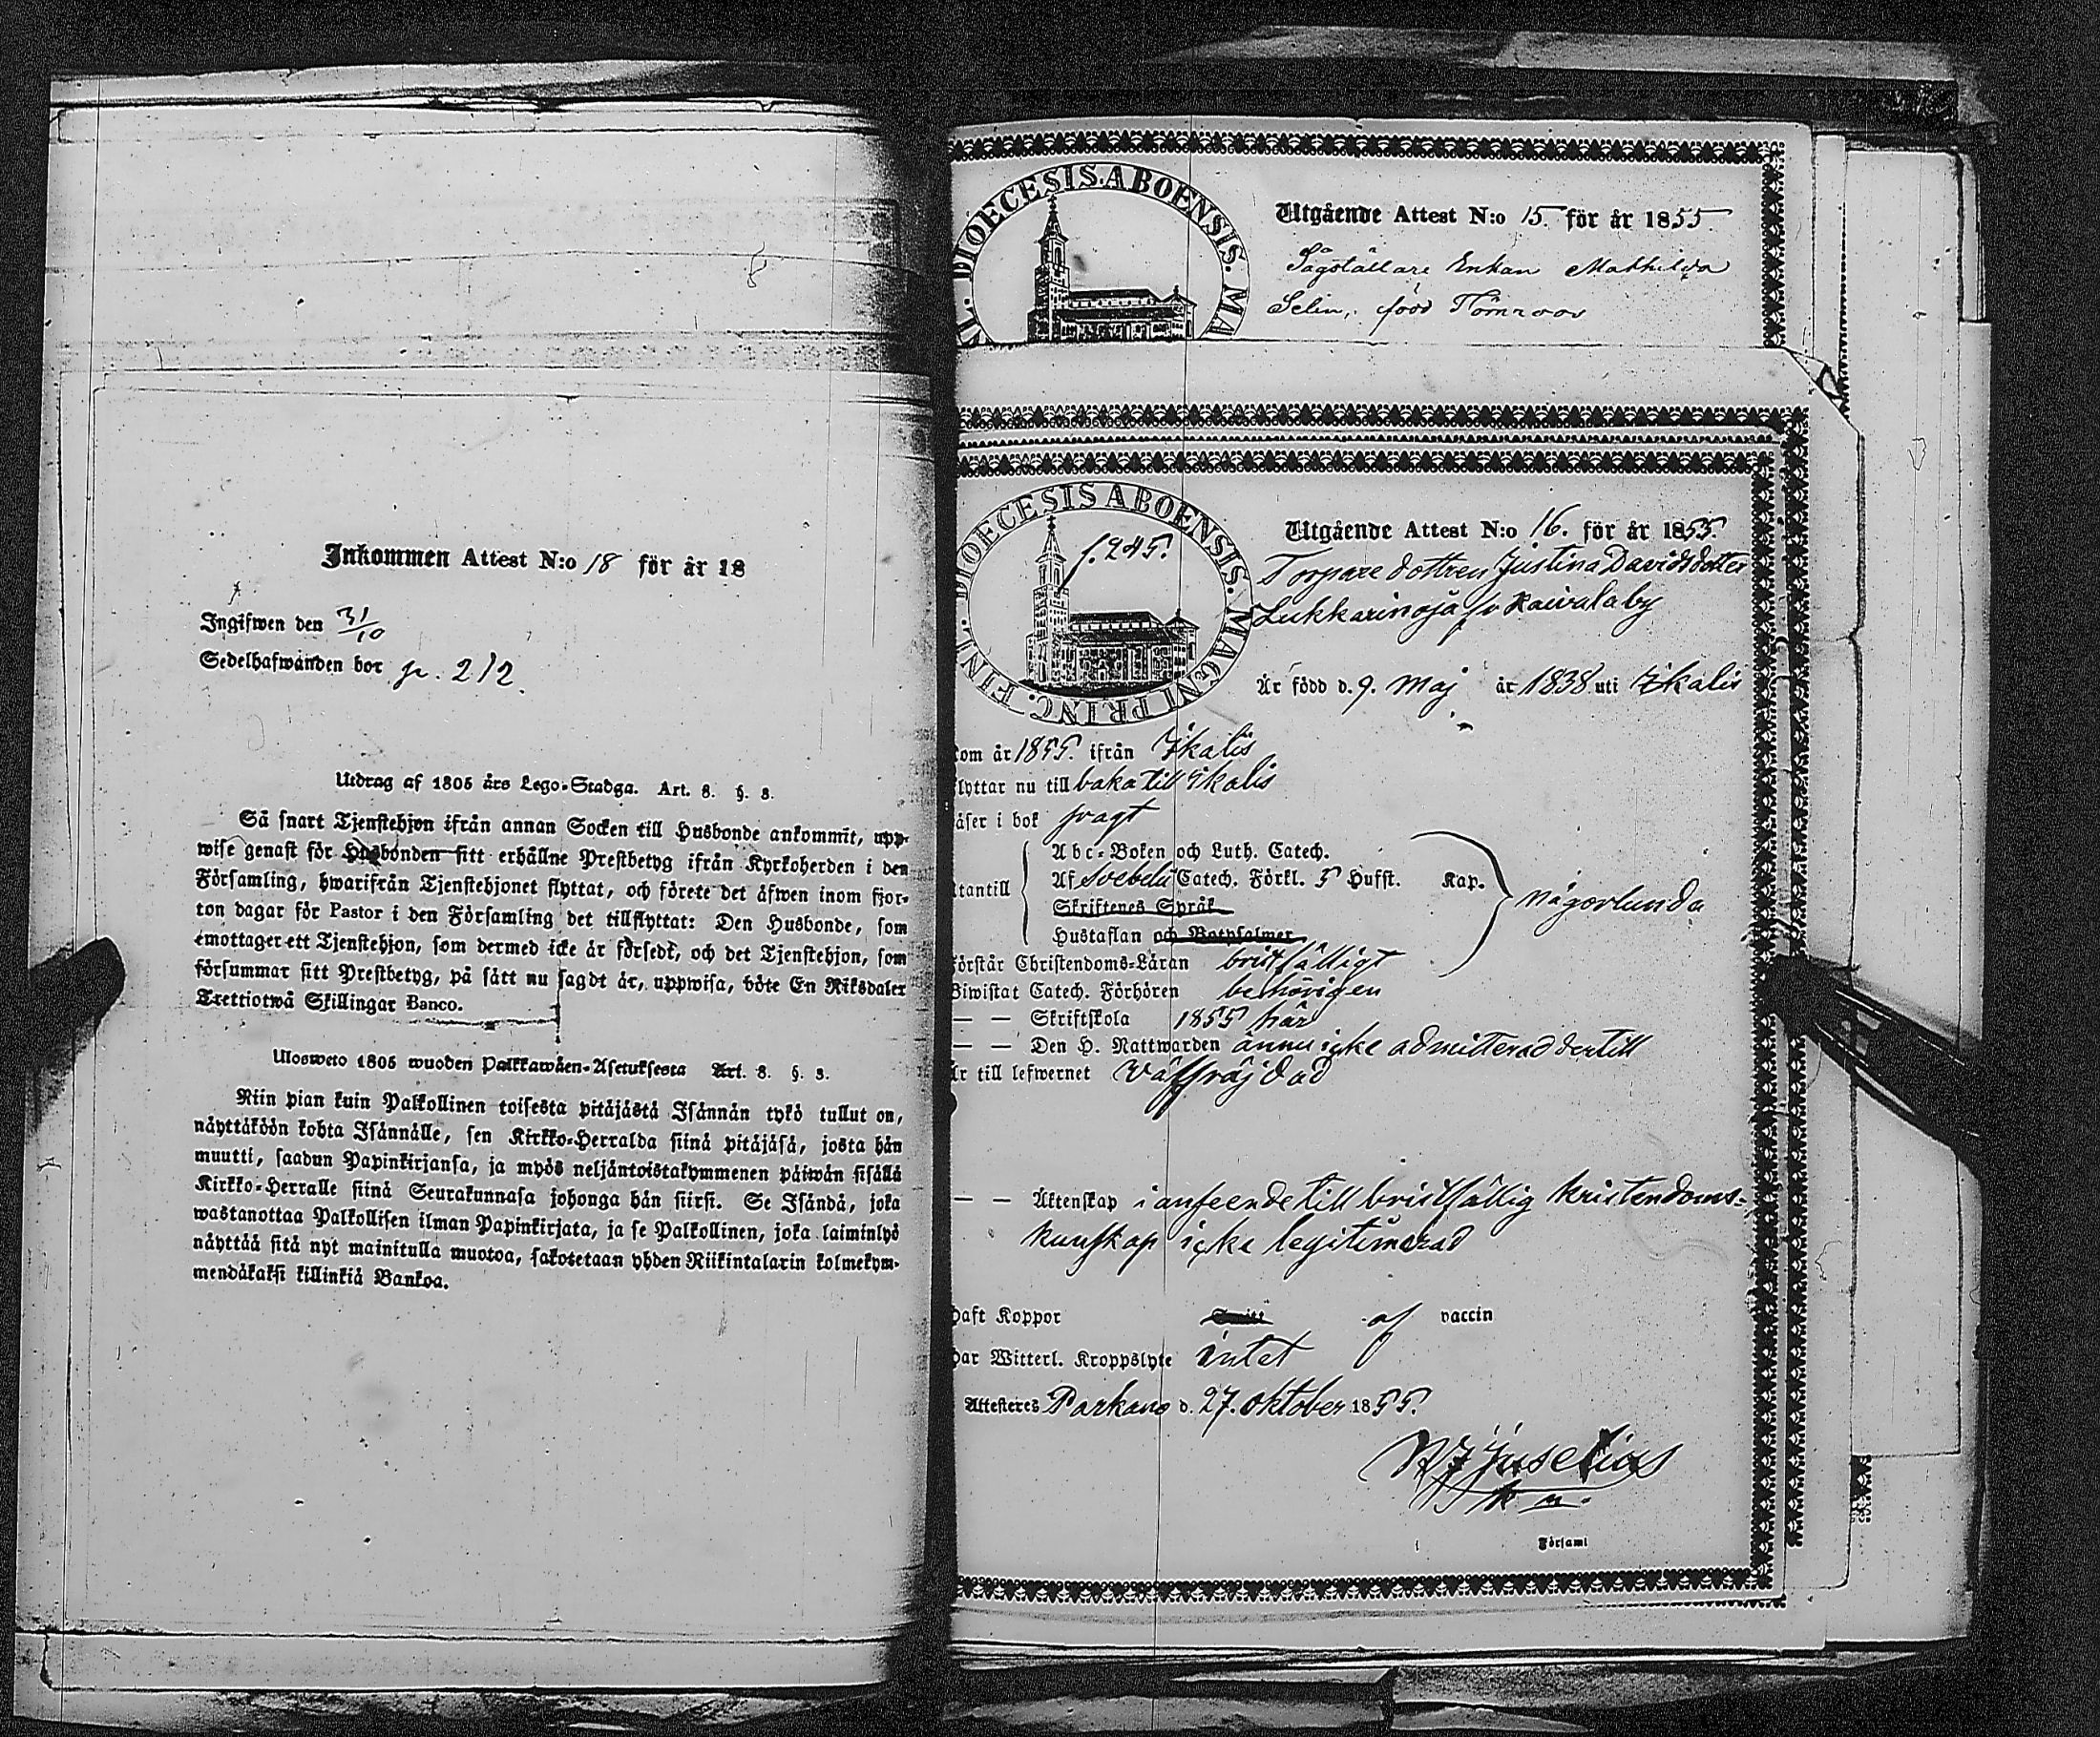 Inkommen Attest N:o 18 för år 18
Ingifwen den 31/10
Sedelhafwanden bor 212.
Utdrag af 1805 års Lego-Stadga. Art. 8. §. 8.
Så snart Tjenstehjon ifrån annan Socken till Husbonde ankommit, upp-
wise genast för Husbonden sitt erhållne Prestbetyg ifrån Kyrkoherden i den
Församling, hwarifrån Tjenstehjonet flyttat, och förete det äfwen inom fjor-
ton dagar för Pastor i den Församling det tillflyttat: Den Husbonde, som
emottager ett Tjenstehjon, som dermed icke är försedt, och det Tjenstehjon, som
försummar sitt Prestbetyg, på sätt nu sagdt är, uppwisa, böte En Riksdaler
Trettiotwå Skillingar Banco.
Ulosweto 1805 wuoden Palkkawäen-Asetuksesta Art. 8. §. 8.
Niin pian kuin Palkollinen toisesta pitäjästä Isännän tykö tullut on,
näyttäköön kohta Isännälle, sen Kirkko-Herralda siinä pitäjäsä, josta hän
muutti, saadun Papinkirjansa, ja myös neljäntoistakymmenen päiwän sisällä
Kirkko-Herralle siinä Seurakunnasa johonga hän siirsi. Se Isändä, joka
wastanottaa Palkollisen ilman Papinkirjata, ja se Palkollinen, joka laiminlyö
näyttää sitä nyt mainitulla muotoa, sakotetaan yhden Riikintalarin kolmekym-
mendäkaksi killinkiä Bankoa.
DIOECESIS ABOENSIS. MA
Utgående Attest N:o 15 för år 1855
Enkan Mathilda
Selin, född Törnroos
FINL. DIOECESIS ABOENSIS. MAGNI PRINC.
f. 245.
Utgående Attest N:o 16. för år 1855.
Torpare dottren Justina Davidsdotter
Lukkarinoja fr Kaivalaby
Är född d. 9. Maj år 1838 uti Ikalis
om år 1855. ifrån Ikalis
lyttar nu till baka till Ikalis
äser i bok svagt
Abc-Boken och Luth. Catech.
tantill Af Svebelii Catech. Förkl. 5 Hufst. Kap. någorlunda
Skriftenes Språk
Hustaflan och Botpsalmer
örstår Christendoms-Läran bristfälligt
Biwistat Catech. Förhören behörigen
— — Skriftskola 1855 här
— — Den H. Nattwarden ännu icke admitterad dertill
r till lefwernet välfräjdad
— — Äktenskap i anseende till bristfällig kristendoms-
kunskap icke legitimerad
haft Koppor af vaccin
har Witterl. Kroppslyte intet
Attesteres Parkano d. 27. oktober 1855.
Juselius
Församl